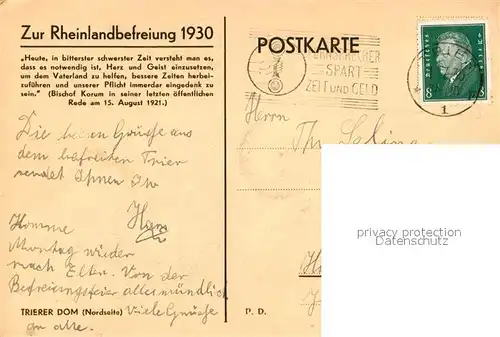 Zur Rheinlandbefreiung 1930
„Heute, in bitterster schwerster Zeit versteht man es,
dass es notwendig ist, Herz und Geist einzusetzen,
um dem Vaterland zu helfen, bessere Zeiten herbei-
zuführen und unserer Pflicht immerdar eingedenk zu
sein.“ (Bischof Korum in seiner letzten öffentlichen
Rede am 15. August 1921.)
Die besten Grüsse aus
dem befreiten Trier
sendet Ihnen Ihr
Hans
Komme
Montag wieder
nach Elten. Von der
Befreiungsfeier alles mündlich
Viele Grüsse
an alle.
TRIERER DOM (Nordseite)
POSTKARTE
FERNSPRECHER
SPART
ZEIT UND GELD
Deutsches Reich
8 8
1
Herrn
Th.
P. D.
privacy protection
Datenschutz